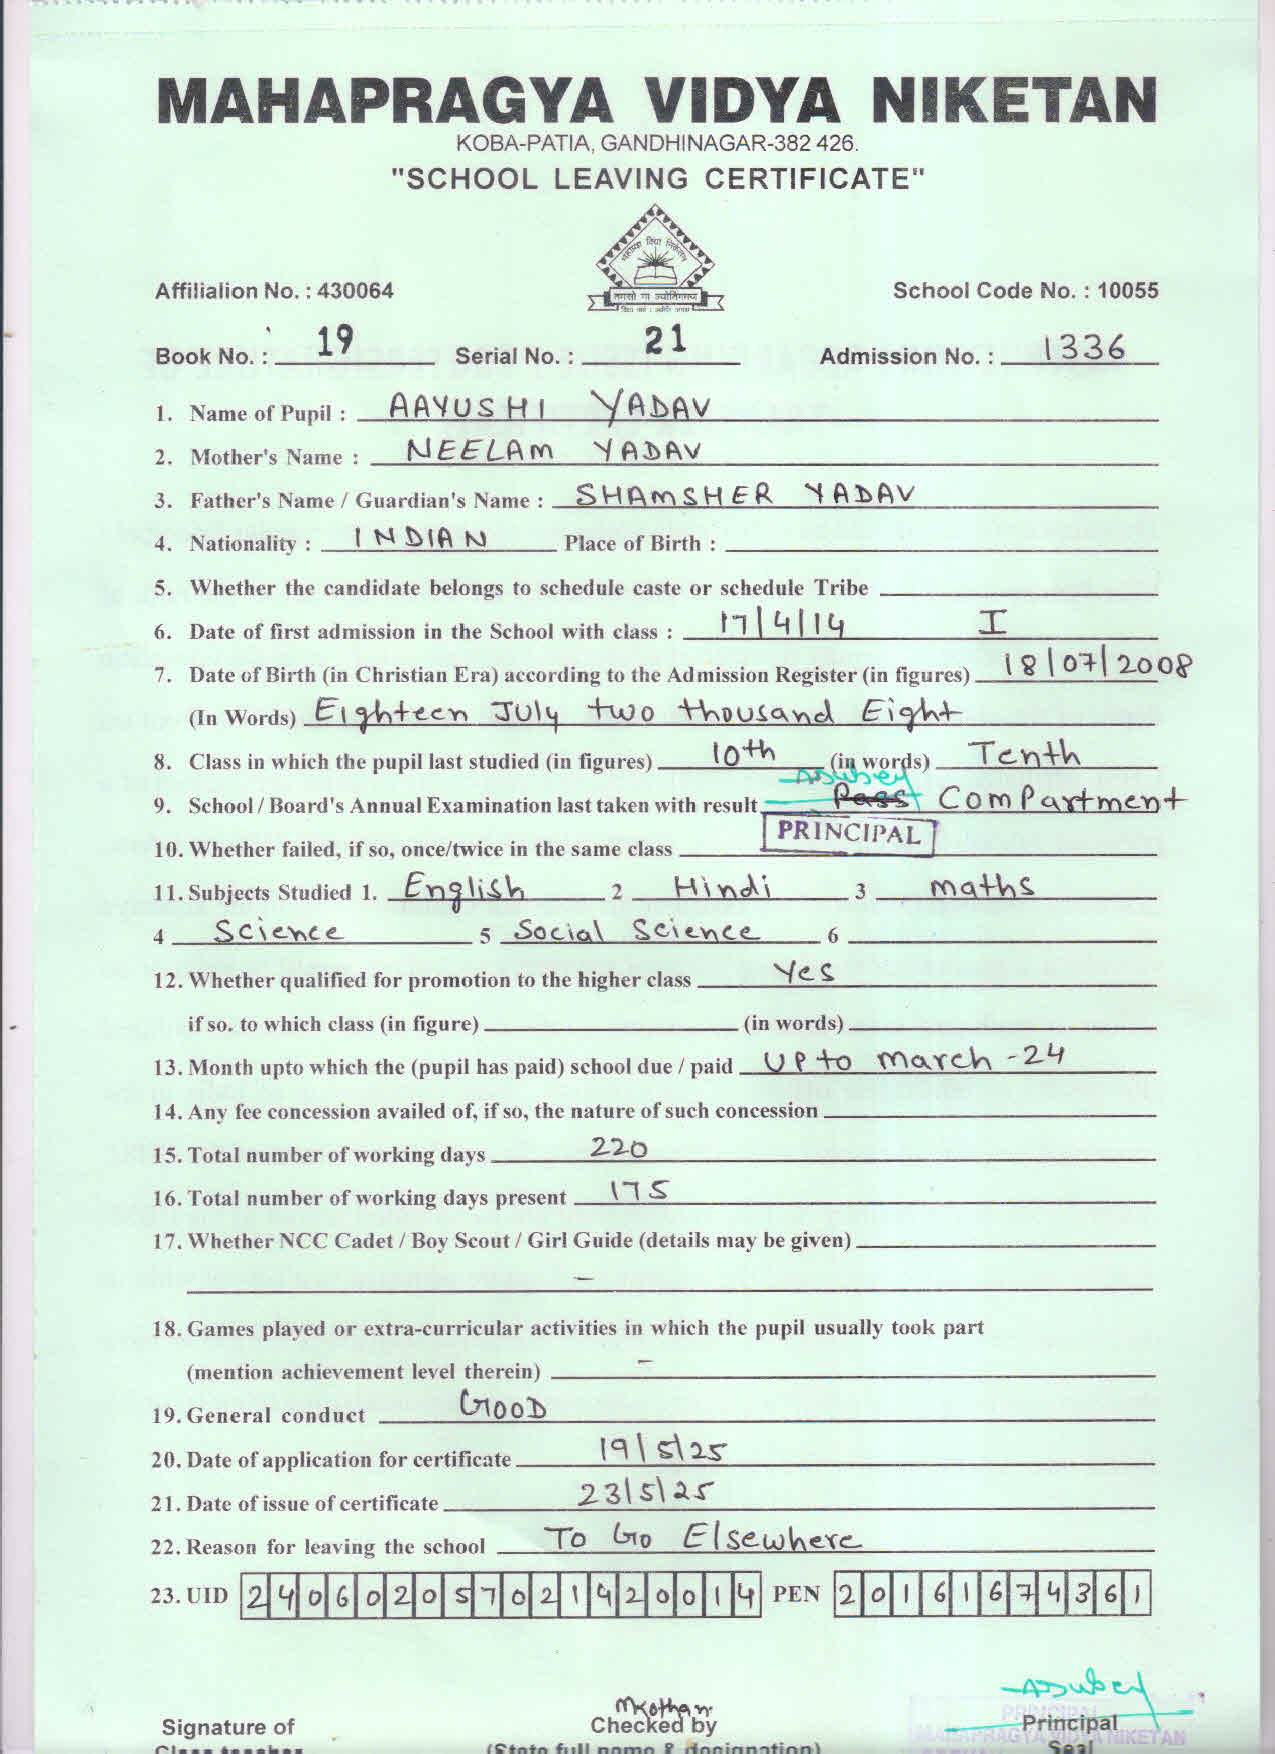 MAHAPRAGYA VIDYA NIKETAN
KOBA-PATIA, GANDHINAGAR-382 426.
"SCHOOL LEAVING CERTIFICATE"
महाप्रज्ञ विद्या निकेतन
तमसो मा ज्योतिर्गमय
Affilialion No. : 430064 School Code No. : 10055
Book No. : 19 Serial No. : 21 Admission No. : 1336
1. Name of Pupil : AAYUSHI YADAV
2. Mother's Name : NEELAM YADAV
3. Father's Name / Guardian's Name : SHAMSHER YADAV
4. Nationality : INDIAN Place of Birth :
5. Whether the candidate belongs to schedule caste or schedule Tribe
6. Date of first admission in the School with class : 17/4/14 I
7. Date of Birth (in Christian Era) according to the Admission Register (in figures) 18/07/2008
(In Words) Eighteen July two thousand Eight
8. Class in which the pupil last studied (in figures) 10th (in words) Tenth
9. School / Board's Annual Examination last taken with result Pass Compartment
PRINCIPAL
10. Whether failed, if so, once/twice in the same class
11. Subjects Studied 1. English 2 Hindi 3 maths
4 Science 5 Social Science 6
12. Whether qualified for promotion to the higher class Yes
if so. to which class (in figure) (in words)
13. Month upto which the (pupil has paid) school due / paid Upto march - 24
14. Any fee concession availed of, if so, the nature of such concession
15. Total number of working days 220
16. Total number of working days present 175
17. Whether NCC Cadet / Boy Scout / Girl Guide (details may be given)
–
18. Games played or extra-curricular activities in which the pupil usually took part
(mention achievement level therein) –
19. General conduct GOOD
20. Date of application for certificate 19/5/25
21. Date of issue of certificate 23/5/25
22. Reason for leaving the school To Go Elsewhere
23. UID 240602057021420014 PEN 20161674361
PRINCIPAL
Signature of Checked by Principal
MAHAPRAGYA VIDYA NIKETAN
Class teacher (State full name & designation) Seal